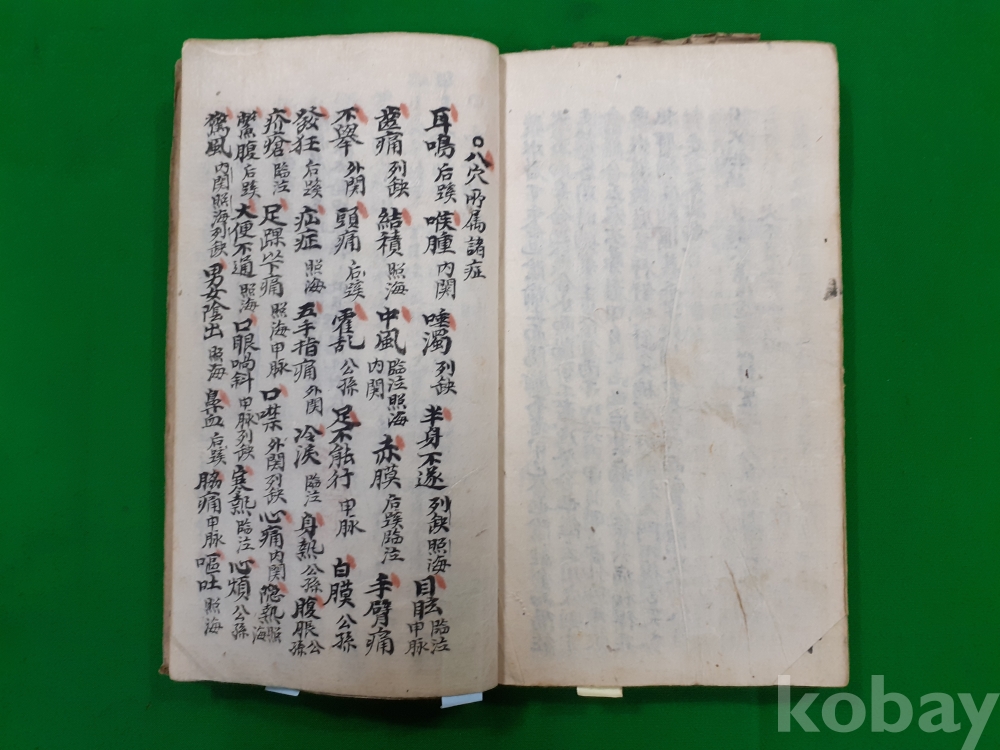 ○八穴所属諸症
耳鳴 后蹊 喉腫 內関 唾濁 列缺 半身不遂 列缺 照海 目眩 臨泣 甲脉
齒痛 列缺 結積 照海 中風 臨泣 照海 內関 赤膜 后蹊 臨泣 手臂痛
不擧 外関 頭痛 后蹊 霍乱 公孫 足不能行 甲脉 白膜 公孫
發狂 后蹊 疝症 照海 五手指痛 外関 冷淚 臨泣 身熱 公孫 腹脹 公孫
疥瘡 臨泣 足踝以下痛 照海 甲脉 口噤 外関 列缺 心痛 內関 隐熱 照海
腹 后蹊 大便不通 照海 口眼喎斜 甲脉 列缺 寒熱 臨泣 心煩 公孫
風 內関 照海 列缺 男女陰出 照海 鼻血 后蹊 脇痛 甲脉 嘔吐 照海
kobay